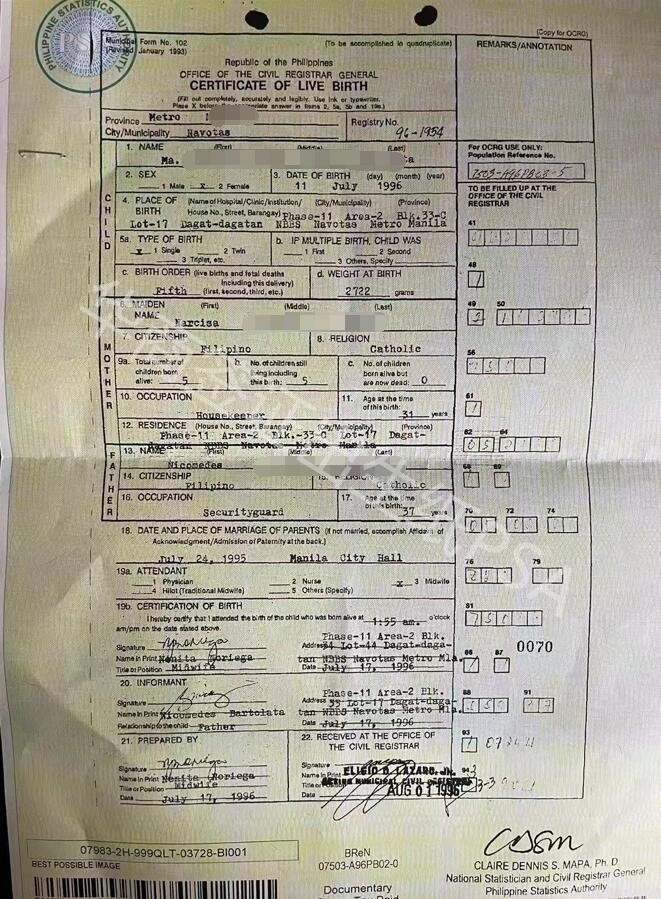 PHILIPPINE STATISTICS AUTHORITY
Municipal Form No. 102
(Revised January 1993)
(To be accomplished in quadruplicate)
(Copy for OCRG)
REMARKS/ANNOTATION
Republic of the Philippines
OFFICE OF THE CIVIL REGISTRAR GENERAL
CERTIFICATE OF LIVE BIRTH
(Fill out completely, accurately and legibly. Use ink or typewriter.
Place X before the appropriate answer in Items 2, 5a, 5b and 19a.)
Province Metro
Registry No.
City/Municipality Navotas
96-1954
For OCRG USE ONLY:
Population Reference No.
CHILD
1. NAME (First) (Middle) (Last)
Ma.
2. SEX
1 Male x 2 Female
3. DATE OF BIRTH (day) (month) (year)
11 July 1996
TO BE FILLED UP AT THE
OFFICE OF THE CIVIL
REGISTRAR
4. PLACE OF BIRTH (Name of Hospital/Clinic/Institution/ (City/Municipality) (Province)
House No., Street, Barangay) Phase-11 Area-2 Blk.33-C
Lot-17 Dagat-dagatan NBBS Navotas Metro Manila
41
5a. TYPE OF BIRTH
x 1 Single 2 Twin
3 Triplet, etc.
b. IF MULTIPLE BIRTH, CHILD WAS
1 First 2 Second
3 Others, Specify
48
c. BIRTH ORDER (live births and fetal deaths
including this delivery)
Fifth (first, second, third, etc.)
d. WEIGHT AT BIRTH
2722 grams
49 50
MOTHER
6. MAIDEN NAME (First) (Middle) (Last)
Narcisa
7. CITIZENSHIP
Filipino
8. RELIGION
Catholic
56
9a. Total number of
children born
alive: 5
b. No. of children still
living including
this birth: 5
c. No. of children
born alive but
are now dead: 0
61
10. OCCUPATION
Housekeeper
11. Age at the time
of this birth: 31 years
12. RESIDENCE (House No., Street, Barangay) (City/Municipality) (Province)
Phase-11 Area-2 Blk.-33-C Lot-17 Dagat-
dagatan NBBS Navotas Metro Manila
62 64
FATHER
13. NAME (First) (Middle) (Last)
Nicomedes
14. CITIZENSHIP
Filipino
15. RELIGION
Catholic
68 69
16. OCCUPATION
Securityguard
17. Age at the time
of this birth: 37 years
70 72 74
18. DATE AND PLACE OF MARRIAGE OF PARENTS (If not married, accomplish Affidavit of
Acknowledgment/Admission of Paternity at the back.)
July 24, 1995 Manila City Hall
76 79
19a. ATTENDANT
1 Physician 2 Nurse x 3 Midwife
4 Hilot (Traditional Midwife) 5 Others (Specify)
19b. CERTIFICATION OF BIRTH
I hereby certify that I attended the birth of the child who was born alive at 1:55 am. o'clock
am/pm on the date stated above.
81
Signature
Name in Print Nenita Noriega
Title or Position Midwife
Phase-11 Area-2 Blk.
Address 34 Lot-44 Dagat-daga-
tan NBBS Navotas Metro Mla.
Date July 17, 1996
0070
86 87
20. INFORMANT
Signature
Name in Print Nicomedes Bartolata
Relationship to the child Father
Phase-11 Area-2 Blk.
Address 33 Lot-17 Dagat-daga-
tan NBBS Navotas Metro Mla.
Date July 17, 1996
88 91
21. PREPARED BY
Signature
Name in Print Nenita Noriega
Title or Position Midwife
Date July 17, 1996
22. RECEIVED AT THE OFFICE OF
THE CIVIL REGISTRAR
Signature
Name in Print ELIGIO D. LAZARO, JR.
Title or Position ACTING MUNICIPAL CIVIL REGISTRAR
Date AUG 01 1996
93
94
07983-2H-999QLT-03728-BI001
BEST POSSIBLE IMAGE
BReN
07503-A96PB02-0
Documentary
Stamp Tax Paid
CLAIRE DENNIS S. MAPA, Ph. D
National Statistician and Civil Registrar General
Philippine Statistics Authority